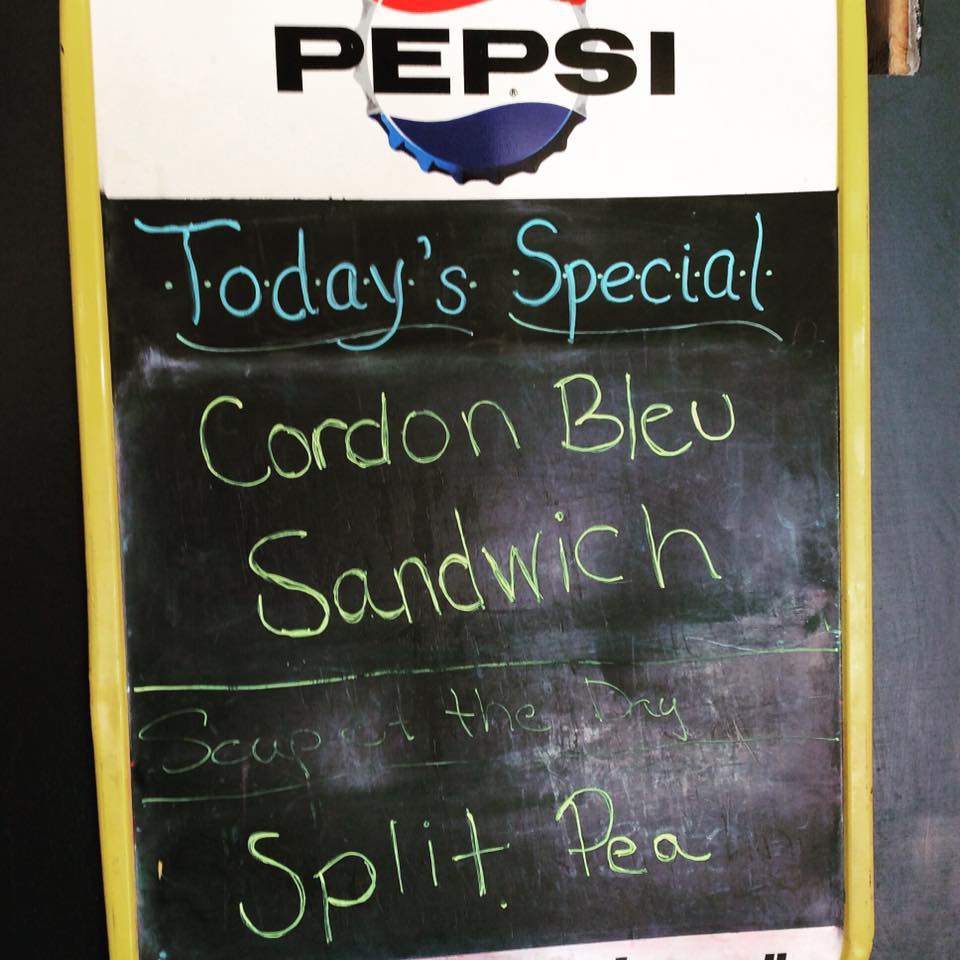 PEPSI
Today's Special
Cordon Bleu
Sandwich
Soup of the Day
Split Pea